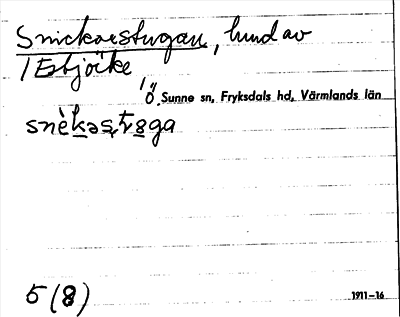 Snickarestugan, hund av
1 Estjöcke
Ö. Sunne sn, Fryksdals hd, Värmlands län
snèkəstsga
5 (8)
1911-16